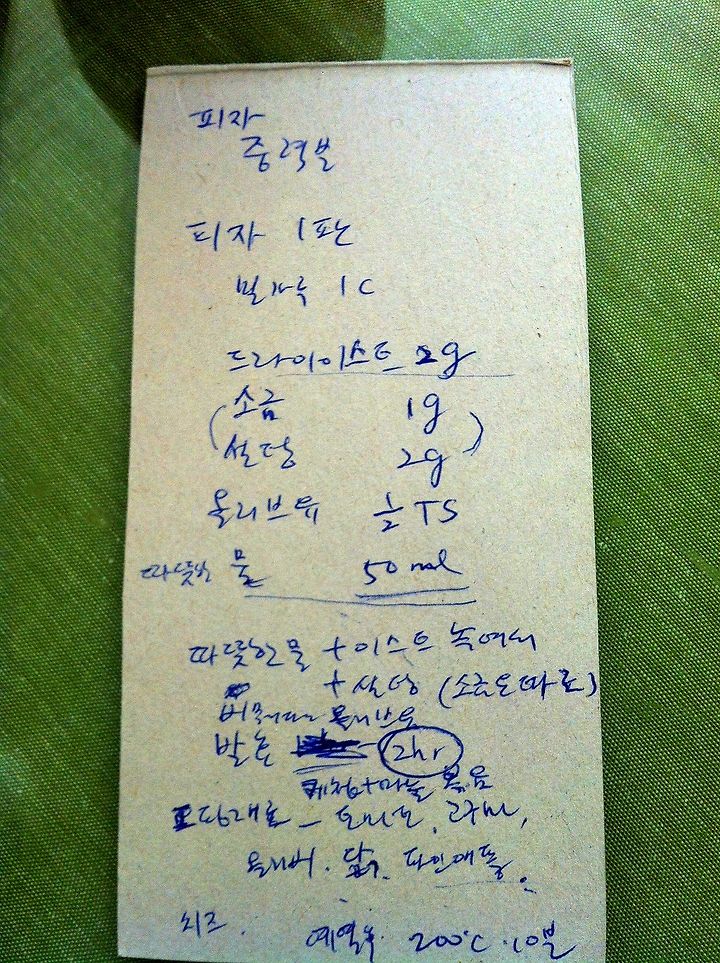 피자
중력분
피자 1판
밀가루 1C
드라이이스트 2g
(소금 1g
설탕 2g)
올리브유 ½ TS
따뜻한 물 50ml
따뜻한물 + 이스트 녹여서
+ 설탕 (소금은 따로)
올리브유
발효 2hr
케찹+마늘 볶음
토마토, 고구마,
올리버. 닭. 파인애플.
치즈. 예열후 200℃ · 10분